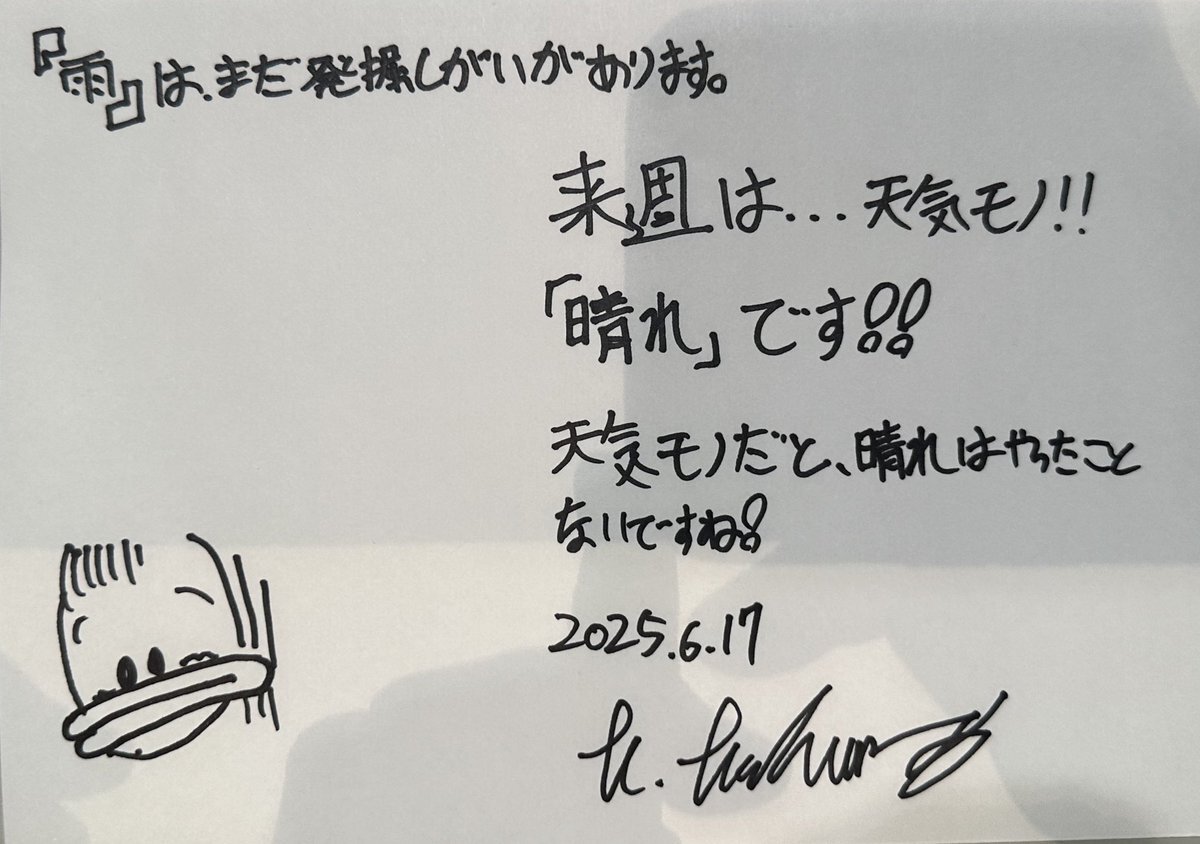 『雨』は、まだ発掘しがいがあります。
来週は…天気モノ!!
「晴れ」です!!
天気モノだと、晴れはやったこと
ないですね!
2025.6.17